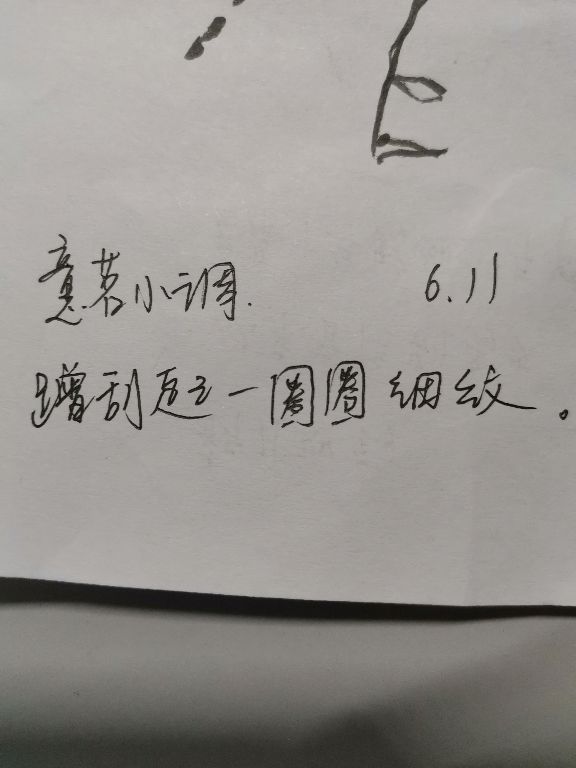 意茗小调. 6.11
蹭刮起一圈圈细纹。